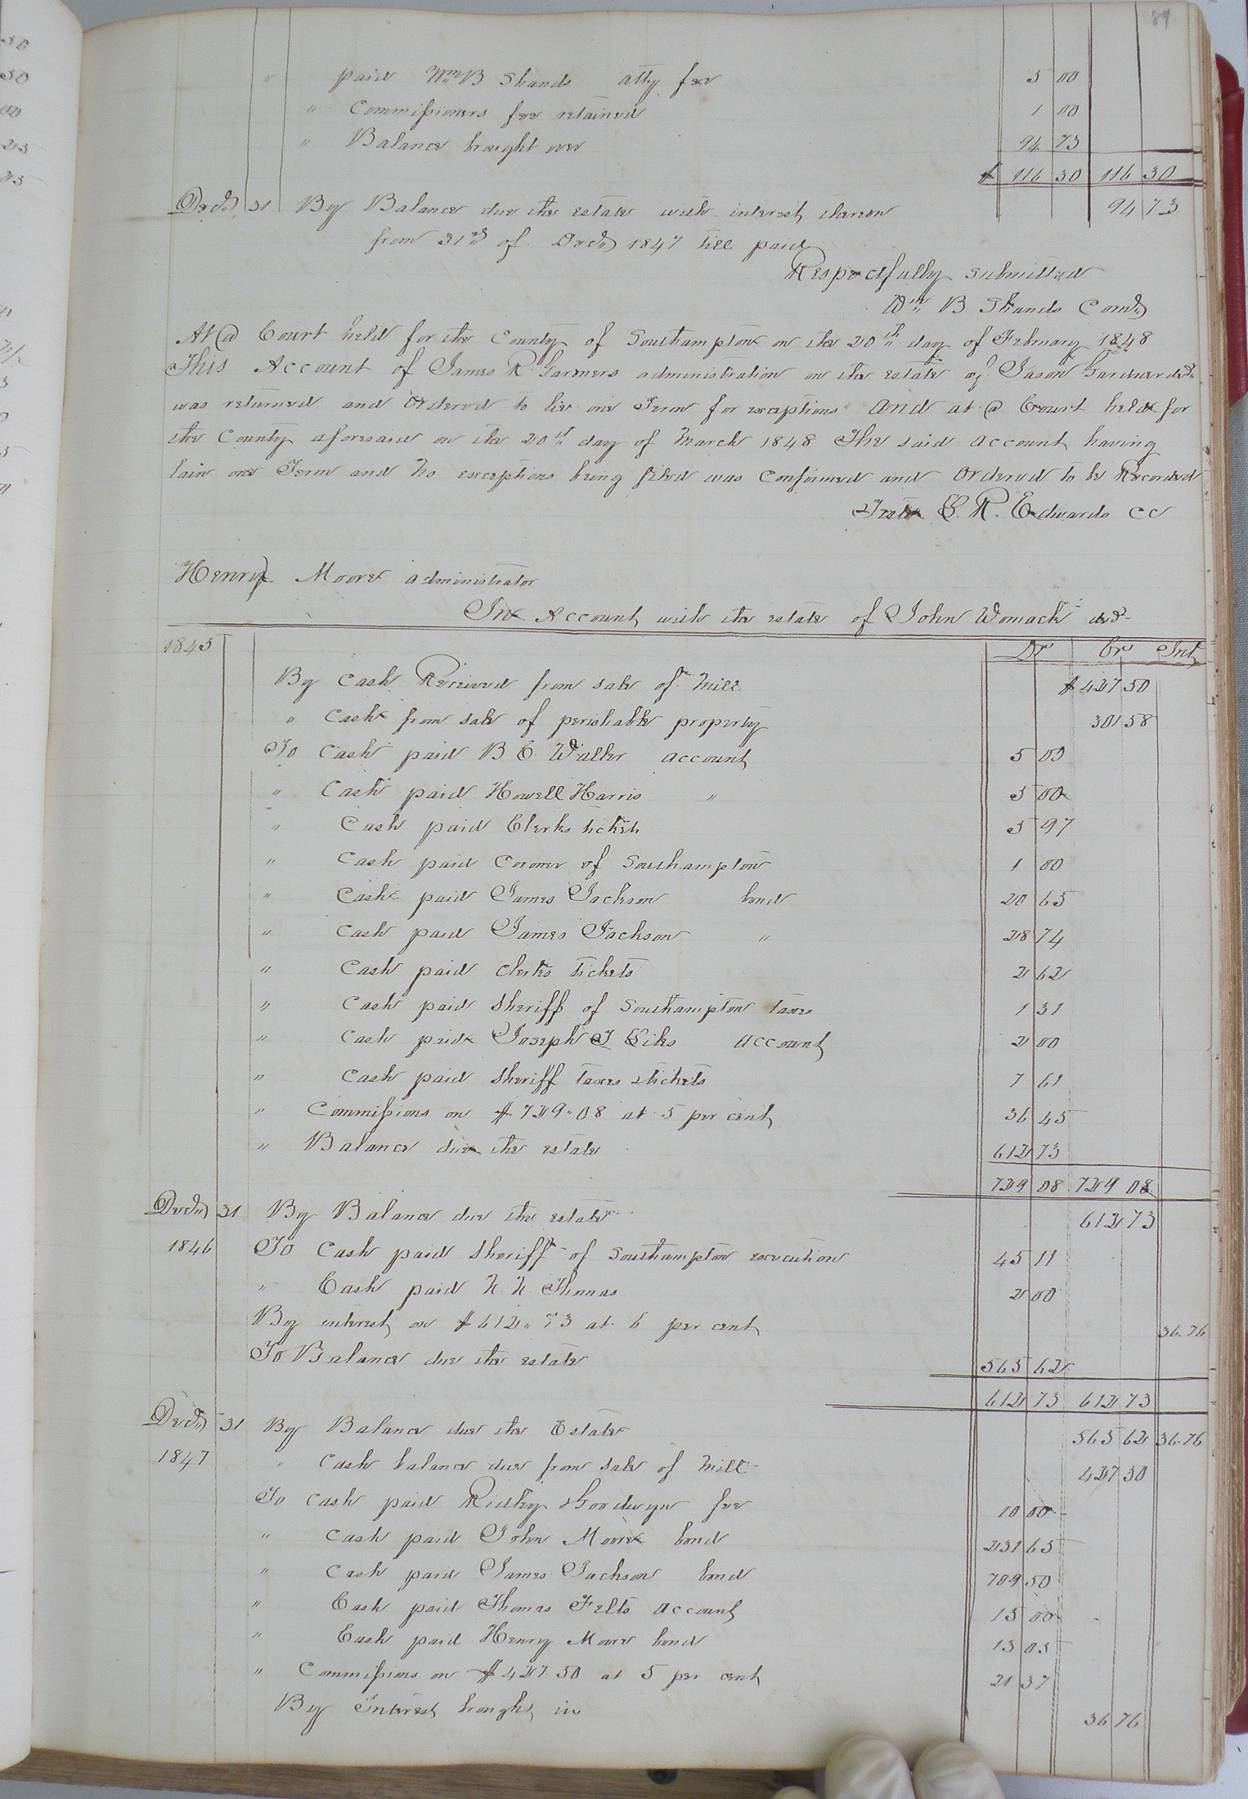 89
" paid Wm B Shands atty fee 5 00
" Commissioners fee retained 1 00
" Balance brought over 94 73
$ 116 30 116 30
Decr 31 By Balance due the estate with interest thereon 94 73
from 31st of Decr 1847 till paid
Respectfully submitted
Wm B Shands Comr
At a Court held for the County of Southampton on the 20th day of February 1848
This Account of James R Garners administration on the estate of Jason Gardner decd
was returned and Ordered to lie one Term for exceptions And at a Court held for
the County aforesaid on the 20th day of March 1848 The said account having
lain one Term and no exceptions being filed was Confirmed and Ordered to be Recorded
Teste L. R. Edwards CC
Henry Moore administrator
In Account with the estate of John Womack decd
1845 Dr Cr Int
By Cash Received from sale of mill $ 427 50
" Cash from sale of perishable property 301 58
To Cash paid B E Waller account 5 03
" Cash paid Howell Harris " 5 00
" Cash paid Clerks tickets 5 97
" Cash paid Coroner of Southampton 1 00
" Cash paid James Jackson bond 20 65
" Cash paid James Jackson " 28 74
" Cash paid clerks tickets 2 62
" Cash paid Sheriff of Southampton taxes 1 31
" Cash paid Joseph T account 2 00
" Cash paid Sheriff taxes & tickets 7 61
" Commissions on $729.08 at 5 per cent 36 45
" Balance due the estate 612 73
729 08 729 08
Decr 31 By Balance due the estate 612 73
1846 To Cash paid Sheriff of Southampton execution 45 11
" Cash paid N N Thomas 2 00
By interest on $612.73 at 6 per cent 36.76
To Balance due the estate 565 62
612 73 612 73
Decr 31 By Balance due the Estate 565 62 36.76
1847 " Cash balance due from sale of mill 427 50
To cash paid Ridley Goodwyn fee 10 00
" cash paid John Moore bond 231 65
" cash paid James Jackson bond 709 50
" Cash paid Thomas Felts account 15 00
" Cash paid Henry Moore bond 13 05
" Commissions on $427.50 at 5 per cent 21 37
By Interest brought in 36 76